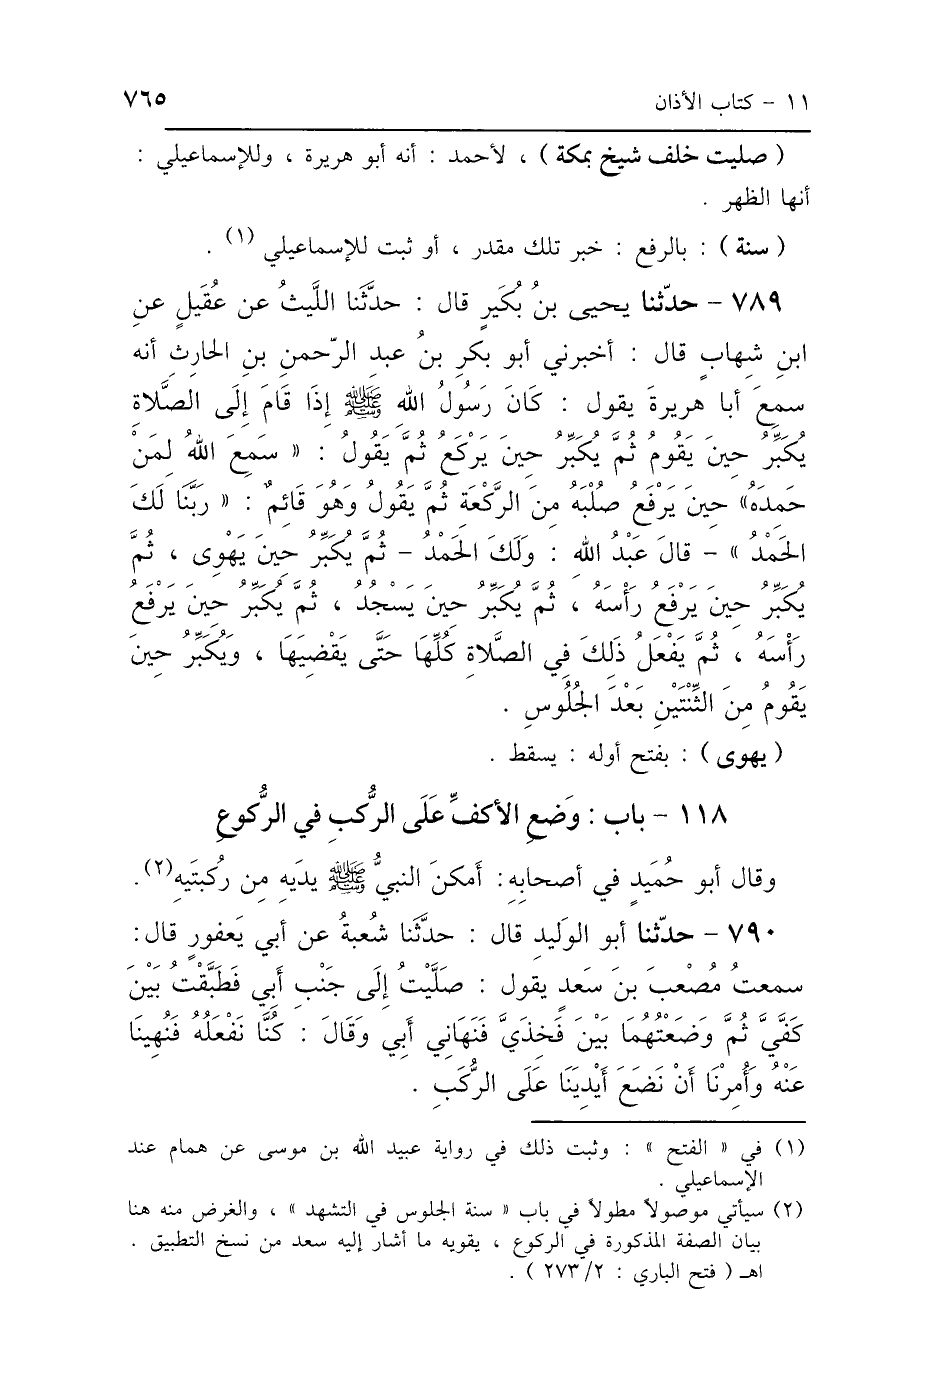 ١١ - كتاب الأذان ٧٦٥
( صليت خلف شيخ بمكة ) ، لأحمد : أنه أبو هريرة ، وللإسماعيلي :
أنها الظهر .
( سنة ) : بالرفع : خبر تلك مقدر ، أو ثبت للإسماعيلي (١) .
٧٨٩ - حدّثنا يحيى بنُ بُكَيرٍ قال : حدَّثَنا اللَّيثُ عن عُقَيلٍ عنِ
ابنِ شهابٍ قال : أخبرني أبو بكرِ بنُ عبدِ الرّحمنِ بنِ الحارثِ أنه
سمعَ أبا هريرةَ يقول : كَانَ رَسُولُ اللهِ ﷺ إِذَا قَامَ إِلَى الصَّلَاةِ
يُكَبِّرُ حينَ يَقُومُ ثُمَّ يُكَبِّرُ حينَ يَرْكَعُ ثُمَّ يَقُولُ : « سَمِعَ اللهُ لِمَنْ
حَمِدَهُ» حِينَ يَرْفَعُ صُلْبَهُ مِنَ الرَّكْعَةِ ثُمَّ يَقُولُ وَهُوَ قَائِمٌ : « رَبَّنَا لَكَ
الحَمْدُ » - قَالَ عَبْدُ اللهِ : وَلَكَ الحَمْدُ - ثُمَّ يُكَبِّرُ حِينَ يَهْوِى ، ثُمَّ
يُكَبِّرُ حِينَ يَرْفَعُ رَأْسَهُ ، ثُمَّ يُكَبِّرُ حِينَ يَسجُدُ ، ثُمَّ يُكَبِّرُ حِينَ يَرْفَعُ
رَأْسَهُ ، ثُمَّ يَفْعَلُ ذَلِكَ فِي الصَّلَاةِ كُلِّهَا حَتَّى يَقْضِيَهَا ، ويُكَبِّرُ حِينَ
يَقُومُ مِنَ الثِّنْتَيْنِ بَعْدَ الجُلُوسِ .
( يهوى ) : بفتح أوله : يسقط .
١١٨ - باب : وَضعِ الأكفِّ عَلَى الرُّكبِ في الرُّكوعِ
وقال أبو حُمَيدٍ في أصحابِهِ: أمكنَ النبيُّ ﷺ يدَيهِ مِن رُكبتَيهِ(٢).
٧٩٠ - حدّثنا أبو الوَليدِ قال : حدَّثَنا شُعبةُ عن أبي يَعفورٍ قال:
سمعتُ مُصْعَبَ بنَ سَعَدٍ يقول : صَلَّيْتُ إِلَى جَنْبِ أَبِي فَطَبَّقْتُ بَيْنَ
كَفَّيَّ ثُمَّ وَضَعْتُهُمَا بَيْنَ فَخِذَيَّ فَنَهَانِي أَبِي وَقَالَ : كُنَّا نَفْعَلُهُ فَنُهِينَا
عَنْهُ وَأُمِرْنَا أَنْ نَضَعَ أَيْدِيَنَا عَلَى الرُّكَبِ .
(١) في « الفتح » : وثبت ذلك في رواية عبيد الله بن موسى عن همام عند
الإسماعيلي .
(٢) سيأتي موصولاً مطولاً في باب « سنة الجلوس في التشهد » ، والغرض منه هنا
بيان الصفة المذكورة في الركوع ، يقويه ما أشار إليه سعد من نسخ التطبيق .
اهـ ( فتح الباري : ٢/ ٢٧٣ ) .